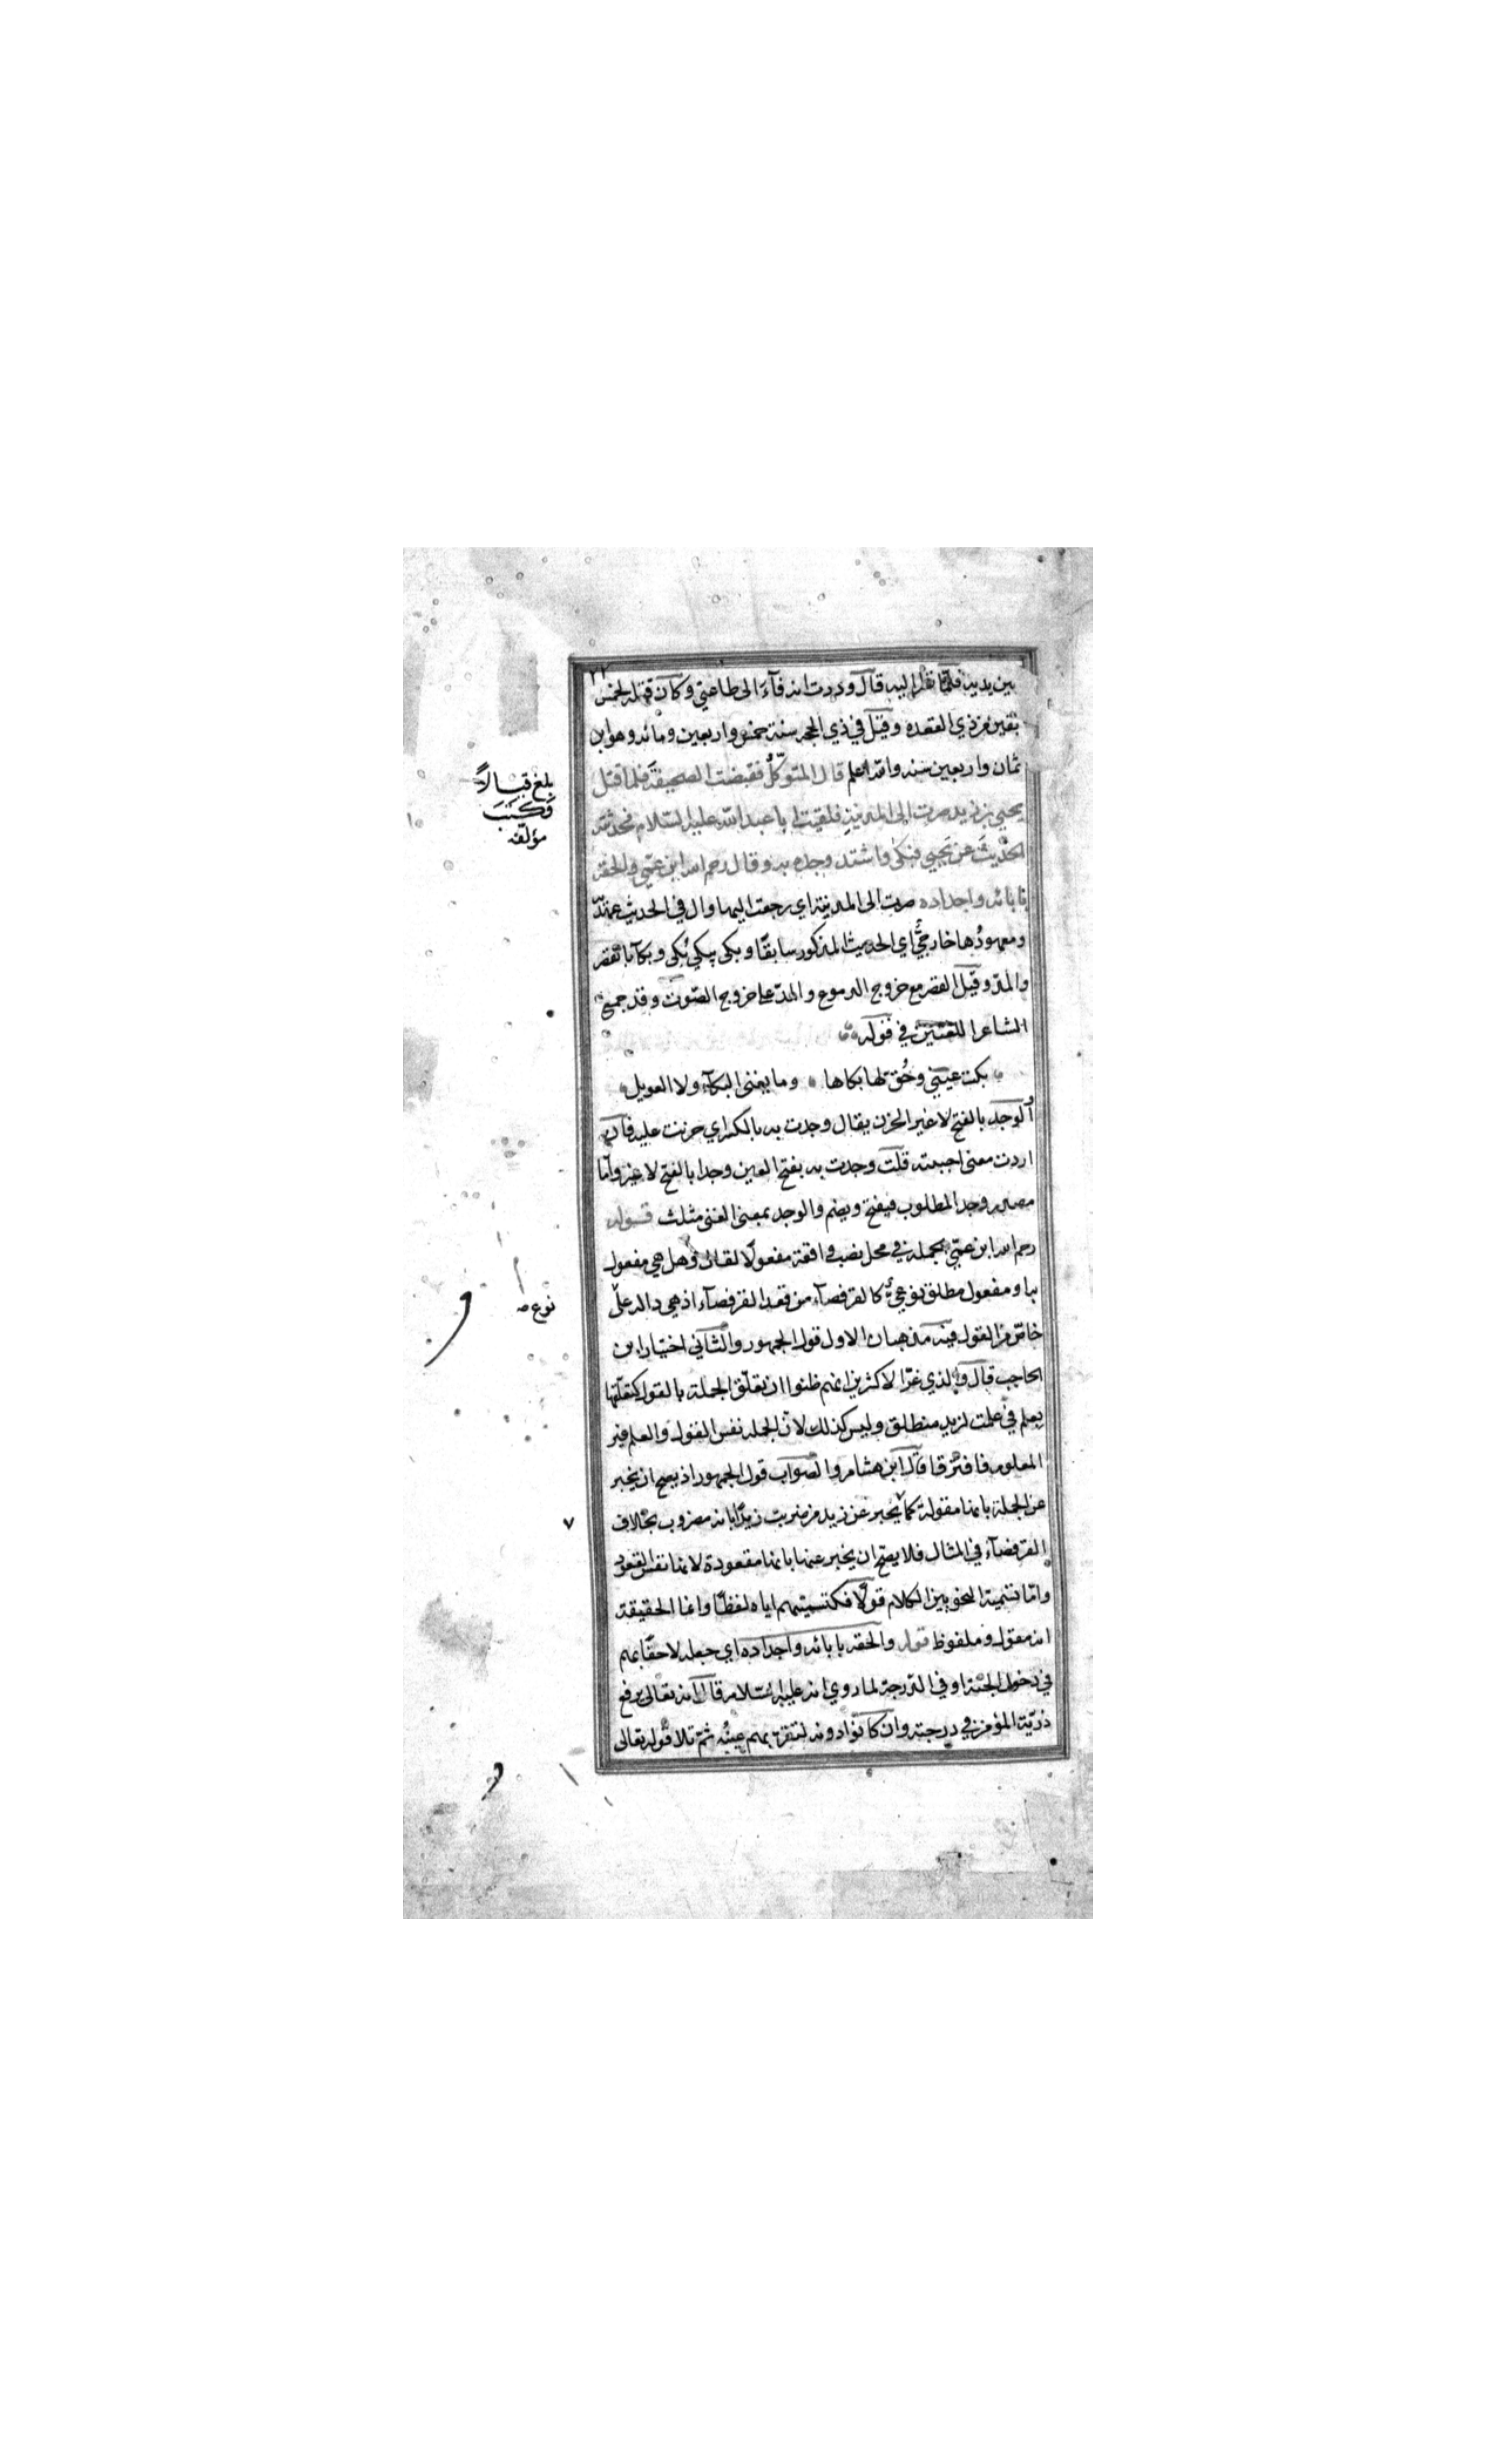 ٢٢
بين يديه فلمّا نظر اليه قال وددت انه فآء الى طاعتي وكان قتله لخمس
بقين من ذي القعده وقيل في ذي الحجه سنة خمس واربعين ومائه وهو ابن
ثمان واربعين سنه والله اعلم قال المتوكّل فقبضت الصحيفة فلما قتل
يحيى بن زيد صرت الى المدينة فلقيت ابا عبد الله عليه السّلام فحدثته
الحديث عن يحيى فبكى واشتد وجده به وقال رحم الله ابن عمّي والحقه
بابائه واجداده صرت الى المدينة اي رجعت اليها وال في الحديث عهديّة
ومعهودها خارجيّ اي الحديث المذكور سابقًا وبكى يبكي بُكى وبكآء بالقصر
والمدّ وقيل القصر مع خروج الدموع والمدّ على خروج الصّوت وقد جمع
الشاعر اللغتين في قوله
بكت عيني وحُق لها بكاها وما يغني البكآء ولا العويل
الوجد بالفتح لا غير الحزن يقال وجدت به بالكسر اي حزنت عليه فان
اردت معنى احببته قلت وجدت به بفتح العين وجدا بالفتح لا غير واما
مصدر وجد المطلوب فيفتح ويضم والوجد بمعنى الغنى مثلث قوله
رحم الله ابن عمّي جملة في محل نصب واقعة مفعولًا لقال وهل هي مفعول
به او مفعول مطلق نوعيّ كالقرفصآء من قعد القرفصآء اذ هي دالة على
خاصّ من القول فيه مذهبان الاول قول الجمهور والثاني اختيار ابن
الحاجب قال والذي غرّ الاكثرين انهم ظنوا ان تعلّق الجملة بالقول كتعلّقها
بعلم في علمت لزيد منطلق وليس كذلك لانّ الجملة نفس القول والعلم غير
المعلوم فافترقا قال ابن هشام والصواب قول الجمهور اذ يصح ان يخبر
عن الجملة بانها مقولة كما يخبر عن زيد من ضربت زيدًا بانه مضروب بخلاف
القرفصآء في المثال فلا يصح ان يخبر عنها بانها مقعودة لانها نفس القعود
وامّا تسمية النحويين الكلام قولًا فكتسميتهم اياه لفظًا وانما الحقيقة
انه مقول وملفوظ قوله والحقه بابائه واجداده اي جعله لاحقًا بهم
في دخول الجنّة او في الدّرجة لما روي انه عليه السّلام قال انه تعالى يرفع
ذريّة المؤمن في درجته وان كانوا دونه لتقرّ بهم عينُه ثمّ تلا قوله تعالى
بلغ قبالاً
وكتبَ
مؤلفه
نوع
٧